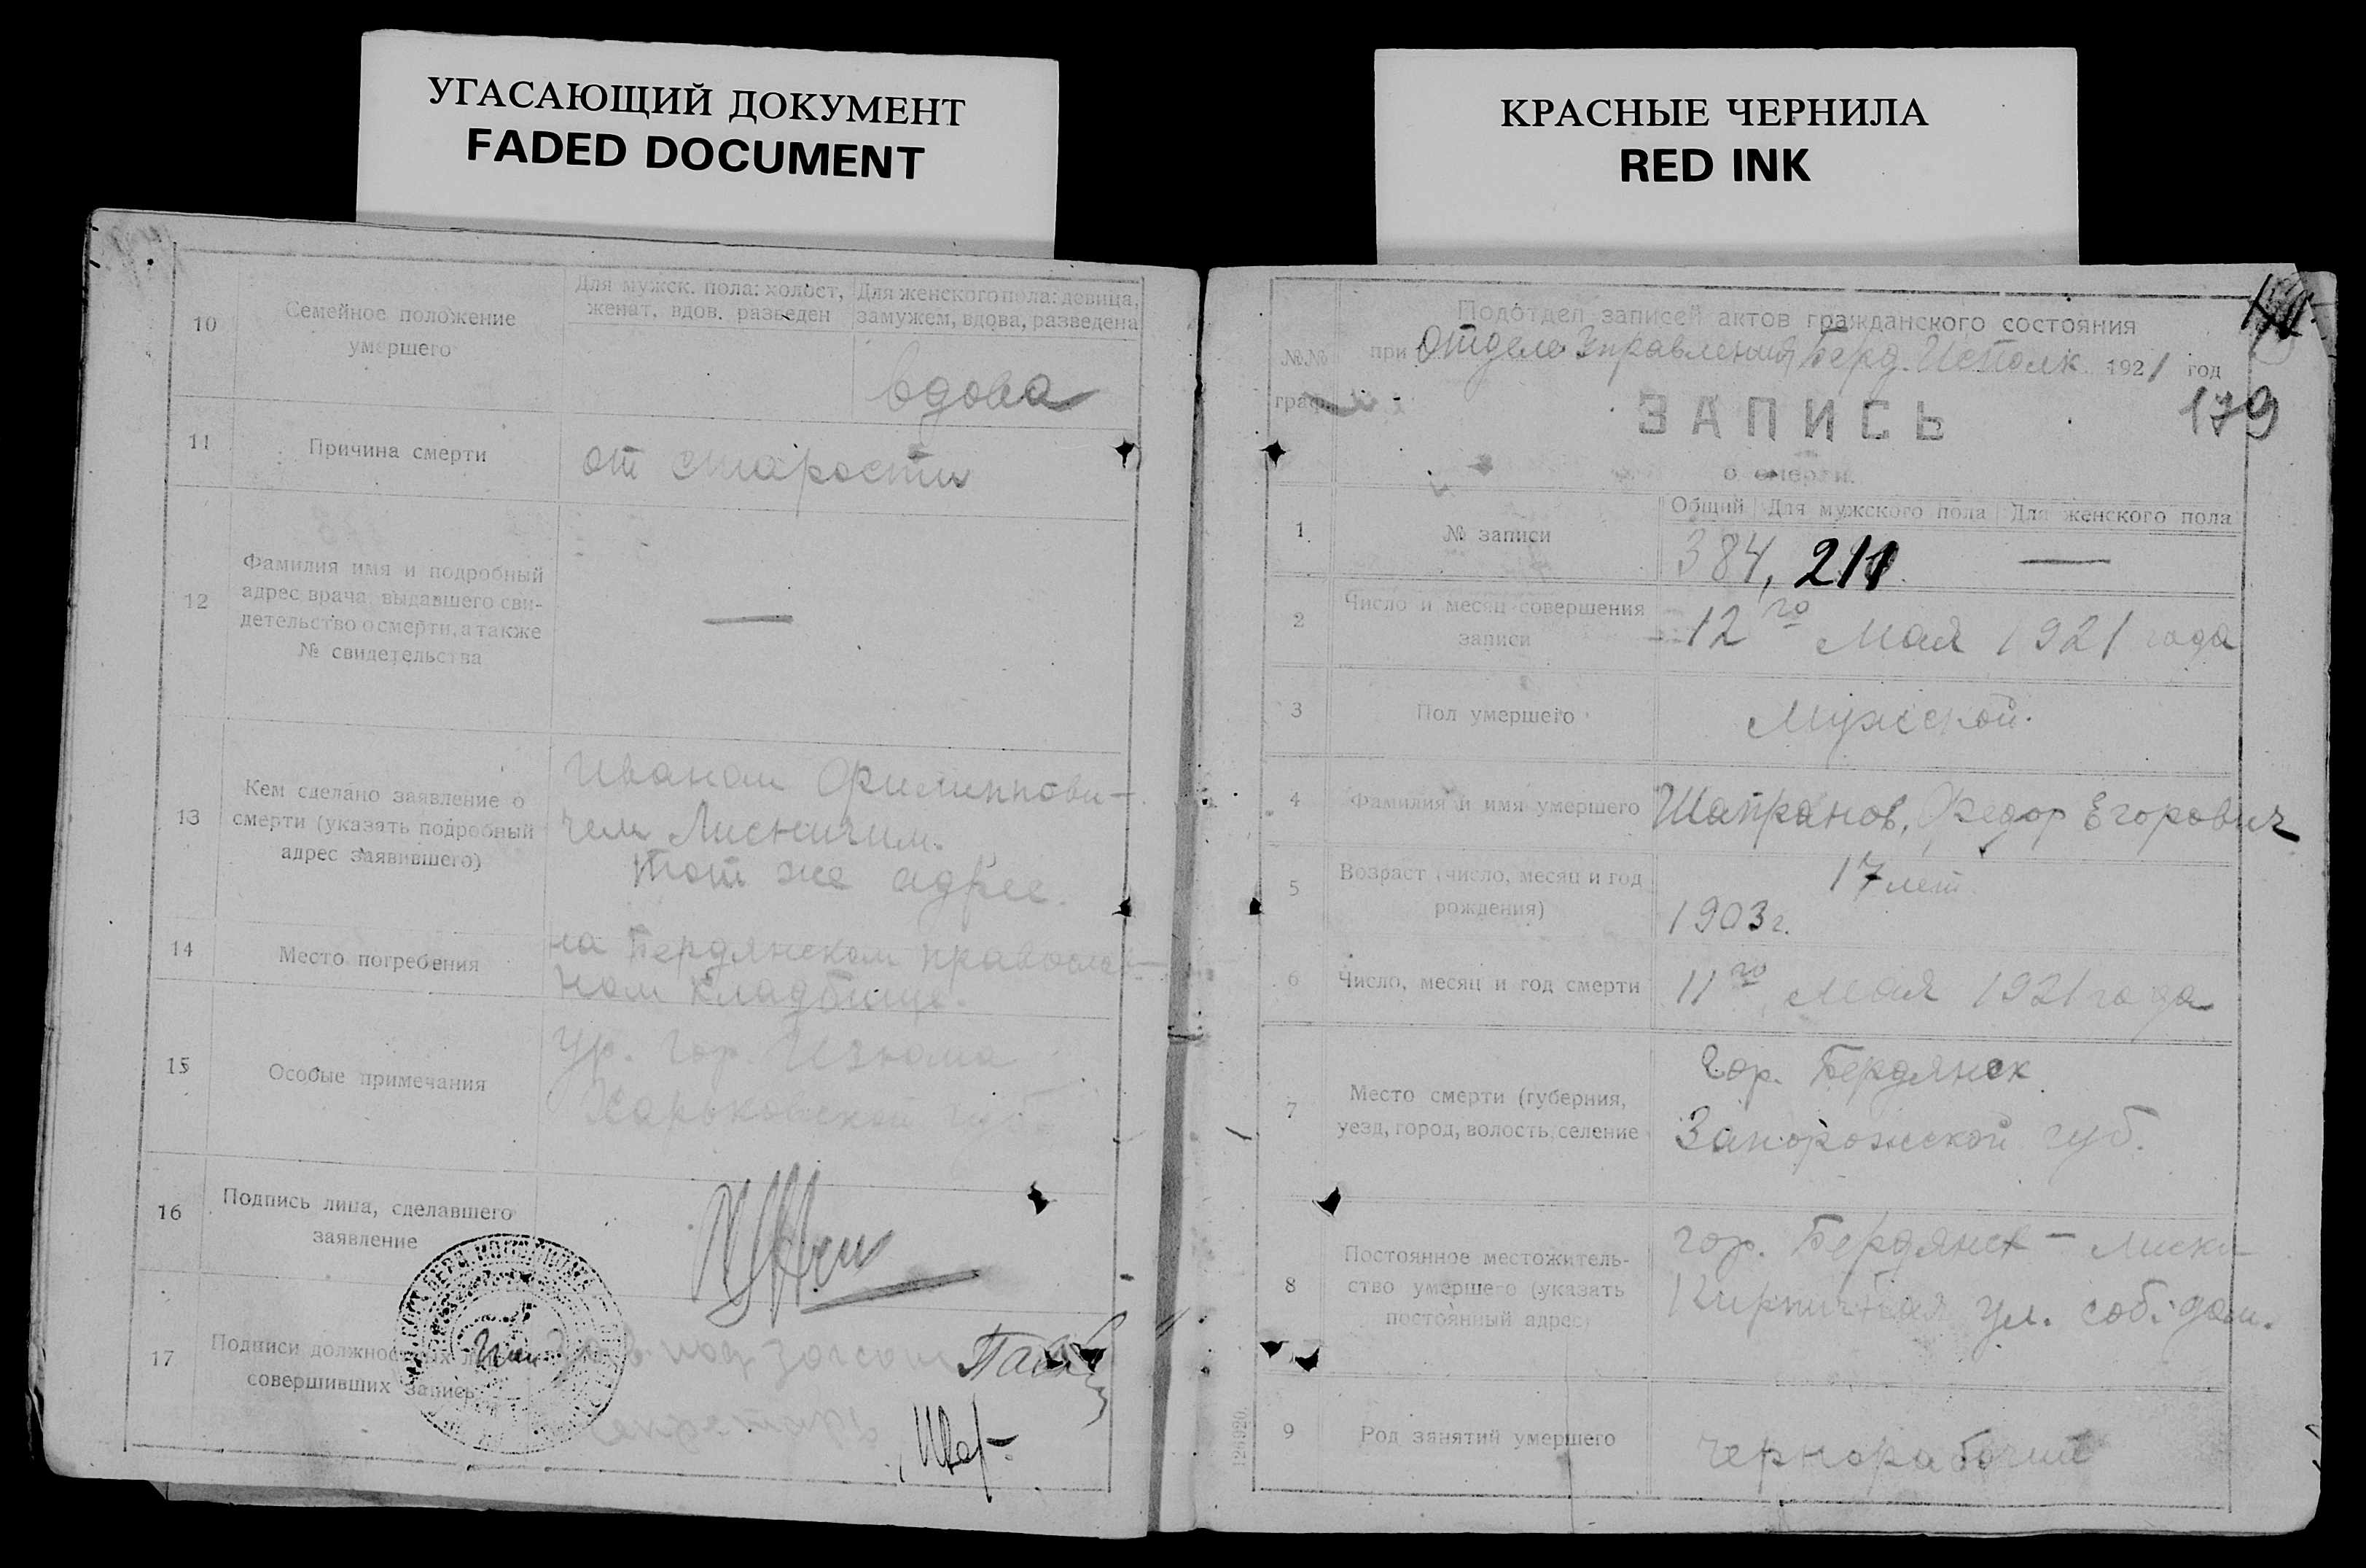 УГАСАЮЩИЙ ДОКУМЕНТ
FADED DOCUMENT
10
Семейное положение
умершего
Для мужск. пола: холост,
женат, вдов, разведен
Для женского пола: девица,
замужем, вдова, разведена
вдова
11
Причина смерти
от старости
12
Фамилия имя и подробный
адрес врача, выдавшего сви-
детельство о смерти, а также
№ свидетельства
—
13
Кем сделано заявление о
смерти (указать подробный
адрес заявившего)
Иваном Филиппови-
чем Лисничим.
тот же адрес.
14
Место погребения
на Бердянском православ-
ном кладбище.
15
Особые примечания
ур. гор. Изюма
Харьковской губ.
16
Подпись лица, сделавшего
заявление
17
Подписи должностных лиц
совершивших запись
КРАСНЫЕ ЧЕРНИЛА
RED INK
Подотдел записей актов гражданского состояния
№№
граф.
при Отделе Управления Берд. Исполк. 1921 год
179
ЗАПИСЬ
о смерти.
1
№ записи
Общий
Для мужского пола
Для женского пола
384, 211. —
2
Число и месяц совершения
записи
12го Мая 1921 года
3
Пол умершего
Мужской.
4
Фамилия и имя умершего
Шапранов, Федор Егорович
5
Возраст (число, месяц и год
рождения)
17 лет
1903 г.
6
Число, месяц и год смерти
11го Мая 1921 года
7
Место смерти (губерния,
уезд, город, волость, селение
Гор. Бердянск
Запорожской губ.
8
Постоянное местожитель-
ство умершего (указать
постоянный адрес)
гор. Бердянск — Лиски
Кирпичная ул. соб. дом.
9
Род занятий умершего
чернорабочий
126920.